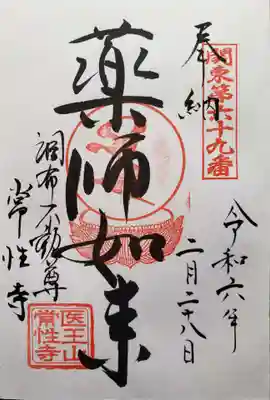 関東第六十九番
奉納
令和六年
二月二十八日
薬師如来
調布不動尊
常性寺
医王山
常性寺